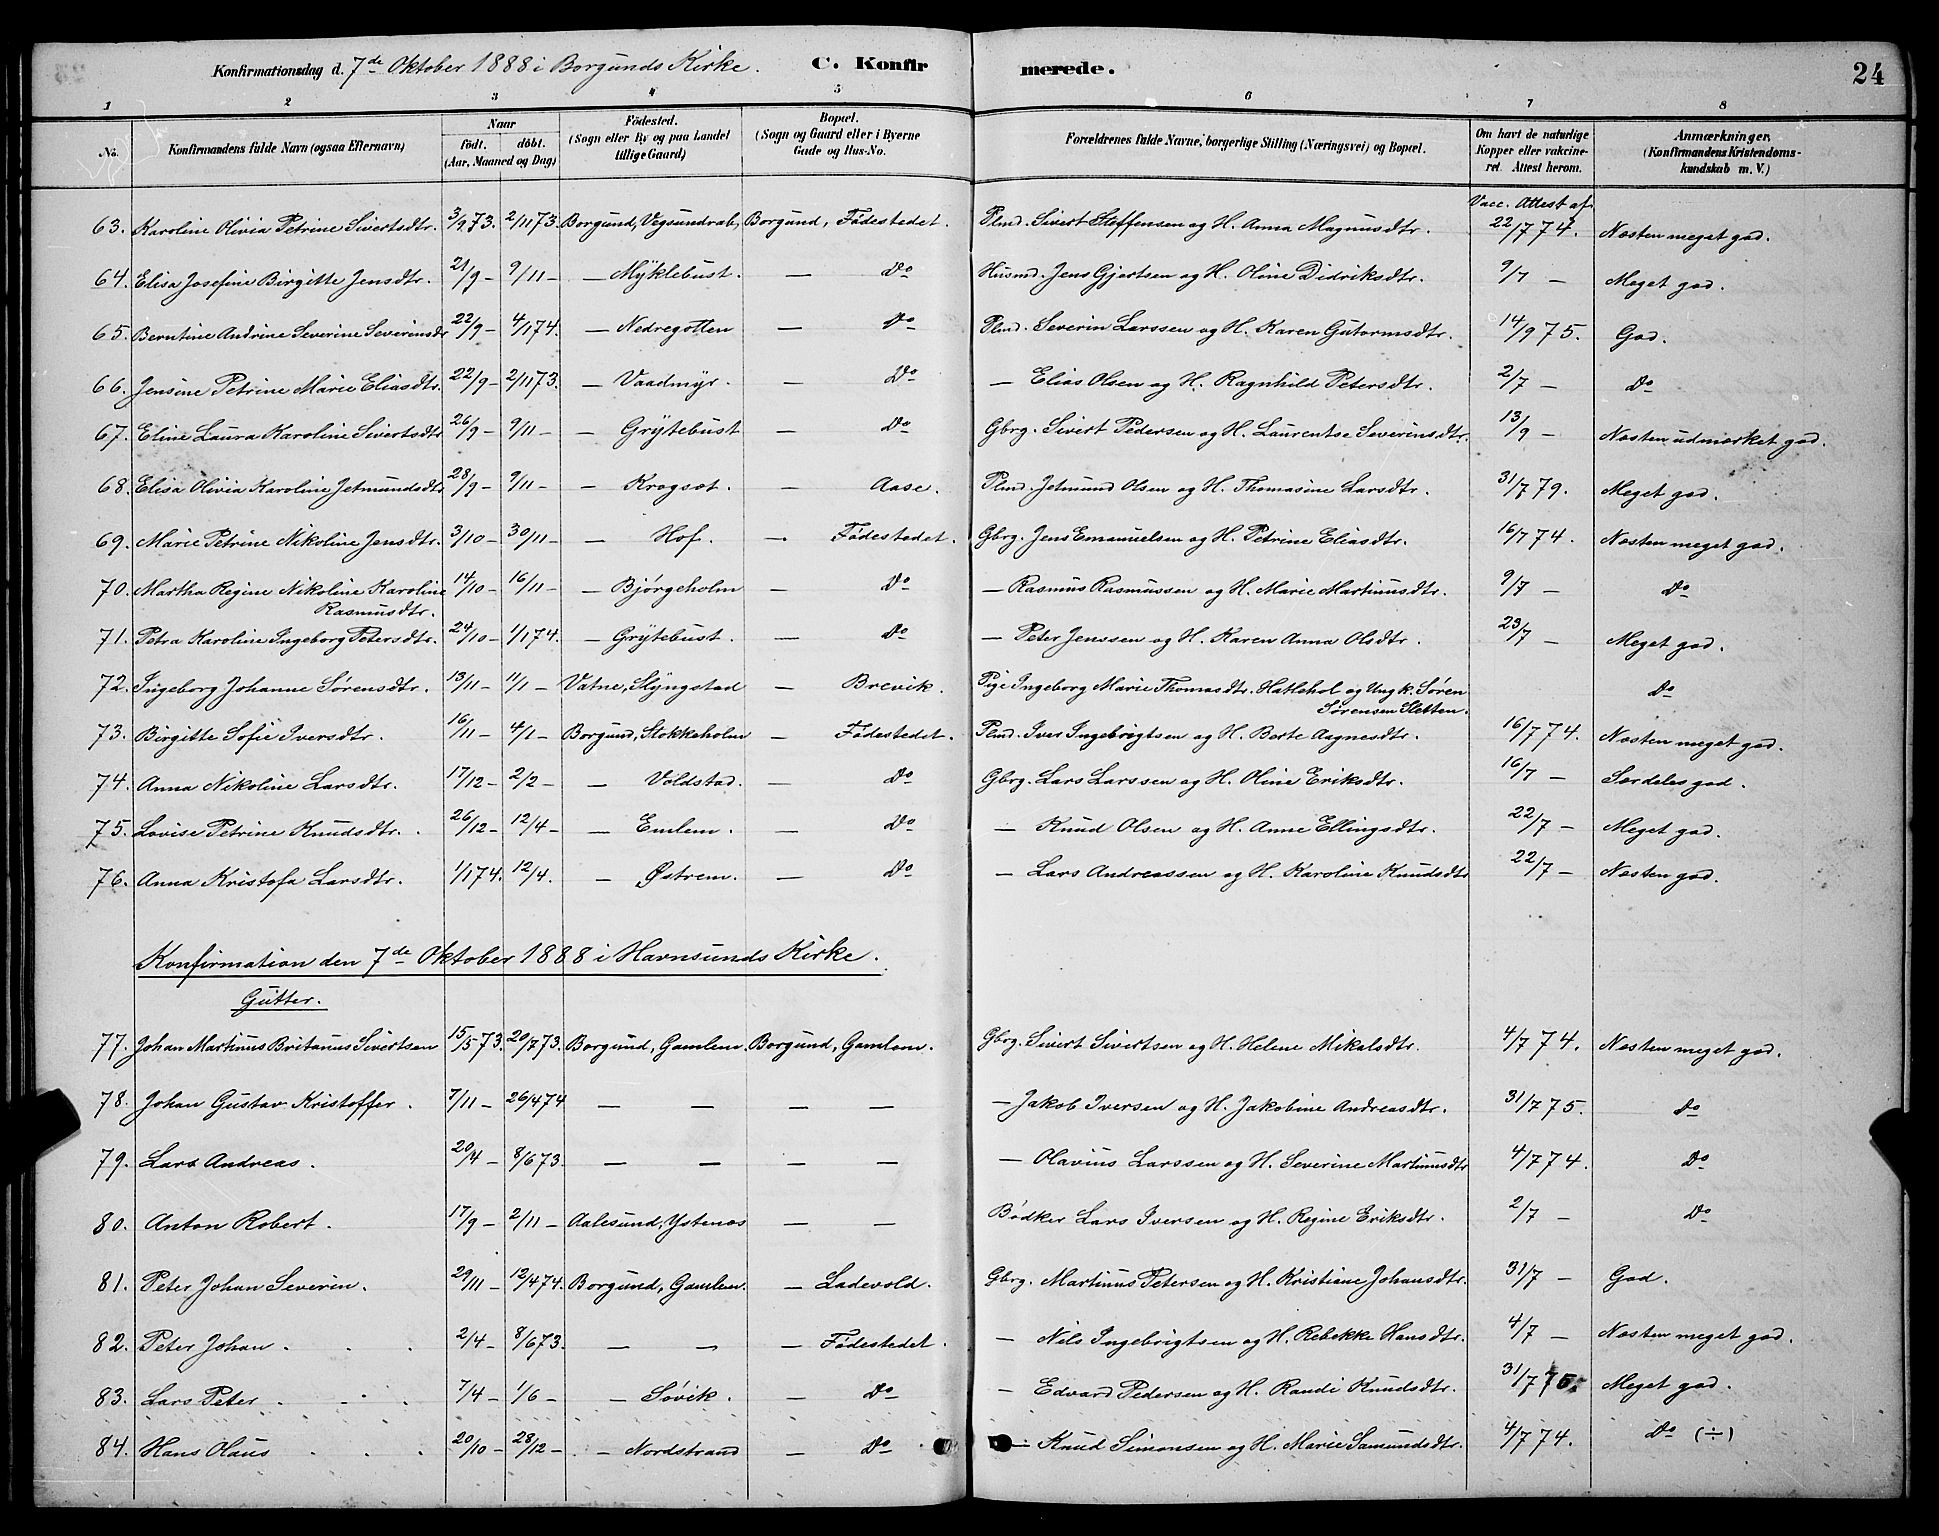 Konfirmationsdag d. 7de Oktober 1888 i Borgunds Kirke. C. Konfirmerede. 24
1 2 3 4 5 6 7 8
No. Konfirmandens fulde Navn (ogsaa Efternavn) Naar født. døbt. (Aar, Maaned og Dag) Fødested. (Sogn eller By og paa Landet tillige Gaard) Bopæl. (Sogn og Gaard eller i Byerne Gade og Hus-No. Forældrenes fulde Navne, borgerlige Stilling (Næringsvei) og Bopæl. Om havt de naturlige Kopper eller vakcineret. Attest herom. Anmærkninger. (Konfirmandens Kristendomskundskab m. V.)
Vacc. Attest af
63. Karoline Olivia Petrine Sivertsdtr. 3/9 73. 2/11 73. Borgund, Vegsundvab, Borgund, Fødestedet. Plmd. Sivert Steffensen og H. Anna Magnusdtr. 22/7 74. Næsten meget god.
64. Elisa Josefine Birgitte Jensdtr. 21/9 - 9/11 - — Myklebust. — Do Husmd. Jens Gjertsen og H. Oline Didriksdtr. 9/7 — Meget god.
65. Berntine Andrine Severine Severinsdtr 22/9 - 4/1 74. — Nedregotten — Do Plmd. Severin Larssen og H. Karen Gutormsdtr. 14/9 75. God.
66. Jensine Petrine Marie Eliasdtr. 22/9 - 2/11 73. — Vaadmyr. — Do — Elias Olsen og H. Ragnhild Petersdtr. 2/7 — Do
67. Eline Laura Karoline Sivertsdtr 26/9 - 9/11 - — Grytebust — Do Gbrg. Sivert Pedersen og H. Laurentse Severinsdtr. 13/9 — Næsten udmærket god.
68. Elisa Olivia Karoline Jetmundsdtr 28/9 - 9/11 - — Krogsæt. — Aase. Plmd. Jetmund Olsen og H. Thomasine Larsdtr. 31/7 79. Meget god.
69. Marie Petrine Nikoline Jensdtr. 3/10 - 30/11 - — Hof. — Fødestedet. Gbrg. Jens Emanuelsen og H. Petrine Eliasdtr. 16/7 74. Næsten meget god.
70. Martha Regine Nikoline Karoline 14/10 - 16/11 - — Bjørgeholm — Do — Rasmus Rasmussen og H. Marie Martinusdtr. 9/7 — Do
Rasmusdtr.
71. Petra Karoline Ingeborg Petersdtr. 24/10 - 1/1 74. — Grytebust. — Do — Peter Jenssen og H. Karen Anna Olsdtr. 23/7 — Meget god.
72. Ingeborg Johanne Sørensdtr. 13/11 - 11/1 - Vatne, Slyngstad — Brevik. Pige Ingeborg Marie Thomasdtr. Hatlehol og Ungk. Søren Do
Sørensen Sletten.
73. Birgitte Sofie Iversdtr. 16/11 - 4/1 - Borgund, Stokkeholm — Fødestedet. Plmd. Iver Ingebrigtsen og H. Berte Aagnesdtr. 16/7 74. Næsten meget god.
74. Anna Nikoline Larsdtr. 17/12 - 2/2 - — Voldstad. — Do Gbrg. Lars Larssen og H. Oline Eriksdtr. 16/7 — Særdeles god.
75. Lovise Petrine Knudsdtr. 26/12 - 12/4 - — Emlem. — Do — Knud Olsen og H. Anne Ellingsdtr. 22/7 — Meget god.
76. Anna Kristofa Larsdtr. 1/1 74. 12/4. — Østrem. — Do — Lars Andreassen og H. Karoline Knudsdtr 22/7 — Næsten god.
Konfirmation den 7de Oktober 1888 i Havnsunds Kirke.
Gutter.
77. Johan Martinus Britanus Sivertsen 15/5 73. 20/7 73. Borgund, Gamlem. Borgund, Gamlem. Gbrg. Sivert Sivertsen og H. Helene Mikalsdtr. 4/7 74. Næsten meget god.
78. Johan Gustav Kristoffer. 7/11 - 26/4 74 — — — — — Jakob Iversen og H. Jakobine Andreasdtr. 31/7 75. Do
79. Lars Andreas. 20/4 - 8/6 73. — — — — — Olavius Larssen og H. Severine Martinusdtr 4/7 74. Do
80. Anton Robert. 17/9 - 2/11 - Aalesund, Ystenæs — — Bødker Lars Iversen og H. Regine Eriksdtr. 2/7 — Do
81. Peter Johan Severin. 29/11 - 12/4 74. Borgund, Gamlem. — Ladevold. Gbrg. Martinus Petersen og H. Kristiane Johansdtr. 31/7 — God.
82. Peter Johan. 2/4 - 8/6 73. — — — Fødestedet. — Nils Ingebrigtsen og H. Rebekke Hansdtr. 4/7 — Næsten meget god.
83. Lars Peter. 7/4 - 1/6 - — Søvik. — Do — Edvard Pedersen og H. Randi Knudsdtr. 31/7 75. Meget god.
84. Hans Olaus 20/10 - 28/12 - — Nordstrand — Do — Knud Simonsen og H. Marie Samundsdtr. 4/7 74. Do (÷)